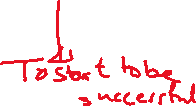 To start to be
successful